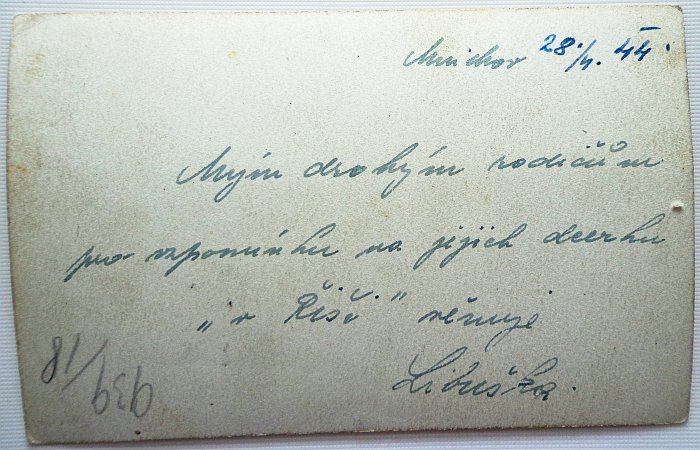 Mnichov 28./4. 44.
Mým drahým rodičům
pro vzpomínku na jejich dcerku
„v Říši" věnuje
Libuška.
939/18